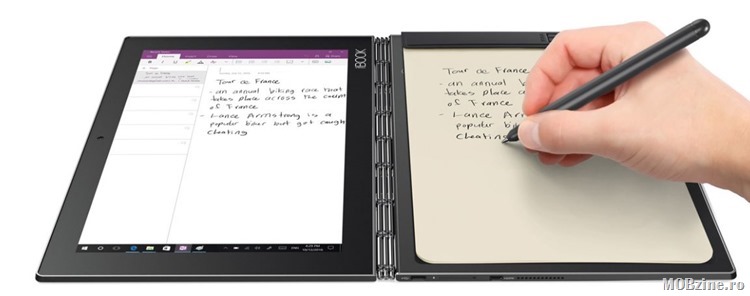 BOOK
Tour de France
- an annual biking race that
takes place across the country
of France
- Lance Armstrong is a
popular biker but got caught
cheating
Tour de France
- an annual
takes place
of France
- Lance Arms
popular bik
cheating
MOBzine.ro